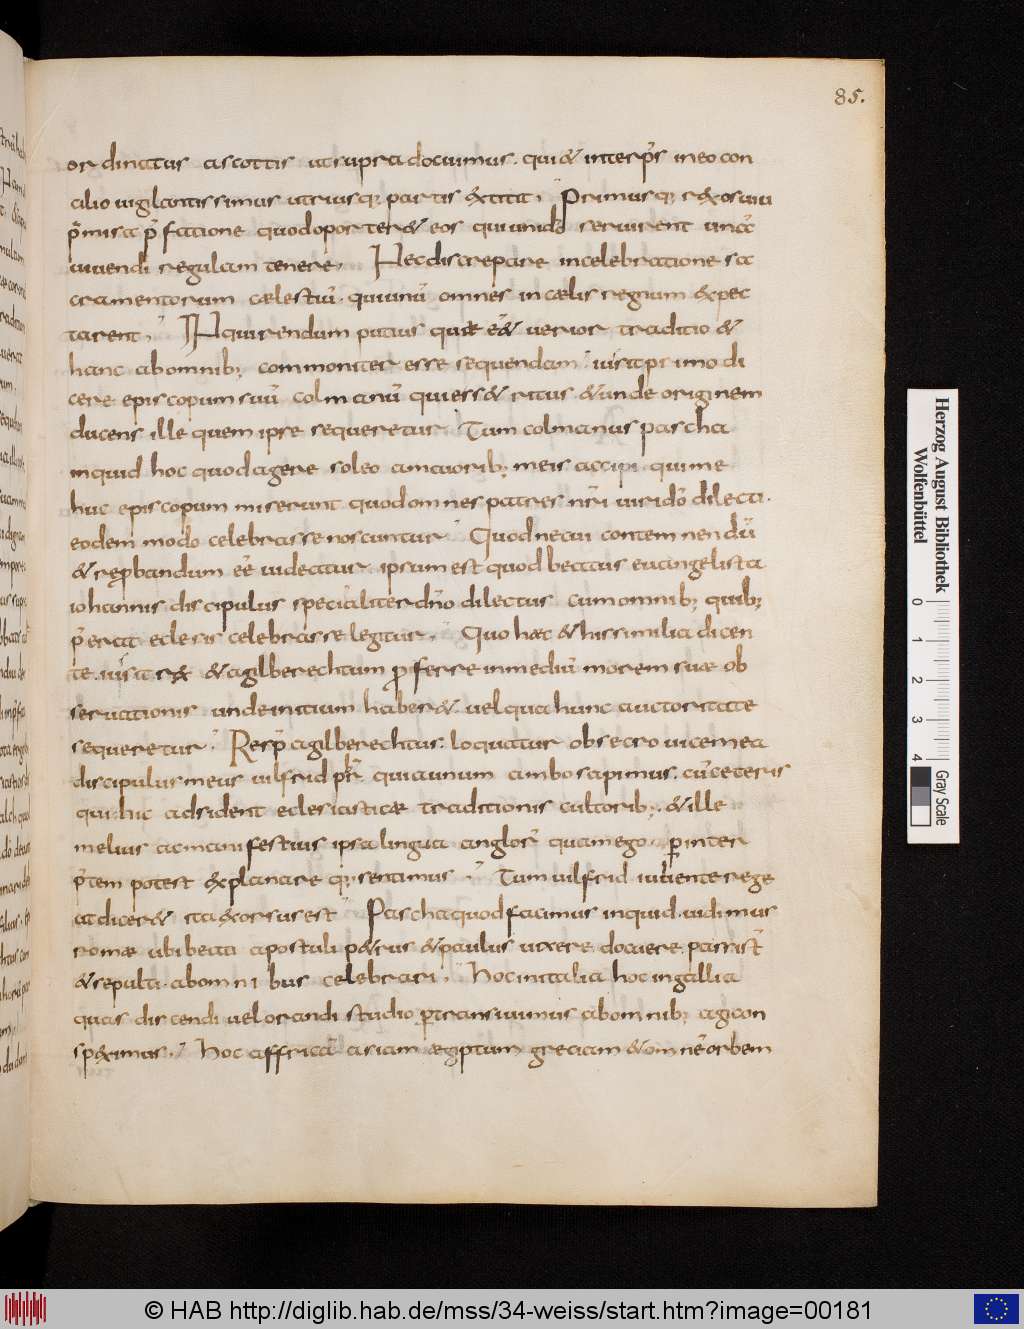 85.
ordinatus a scottis ut supra docuimus. qui & interp̄s in eo con
cilio uigilantissimus utriusq; partis extitit; Primusq; rex osuiu
p̄misa p̄fatione quod oporter& eos qui uni dō seruirent unā
uiuendi regulam tenere; Nec discrepare in celebratione sa
cramentorum cælestiū. qui unū omnes in cælis regnum expec
tarent; Inquirendum potius quæ eēt uerior traditio &
hanc ab omnib; commoniter esse sequendam; iusit primo di
cere episcopum suū colmanū qui esset ritus & unde originem
ducens ille quem ipse sequeretur; Tum colmanus pascha
inquid hoc quod agere soleo a maiorib; meis accipi. qui me
huc episcopum miserunt quod omnes patres nr̄i uiri dō dilecti.
eodem modo celebrasse noscuntur; Quod ne cui contemnendū
& reprobandum eē uideatur ipsum est quod beatus euangelista
iohannis discipulus specialiter dn̄o dilectus cum omnib; quib;
p̄erat eclesis celebrasse legitur; Quo hæc & his similia dicen
te. iusit rex & agilberechtum proferre in mediū morem suæ ob
seruationis unde initium haber& uel qua hunc auctoritate
sequeretur; Resp̄ agilberechtus. loquatur obsecro uice mea
discipulus meus uilfrid pr̄br quia unum ambo sapimus. cū ceteris
qui hic adsident eclesiasticæ traditionis cultorib;. & ille
melius ac manifestius ipsa lingua anglor̄ quam ego per inter
p̄tem potest explanare q; sentimus; Tum uilfrid iubente rege
ut dicer& ita exorsus est; Pascha quod facimus inquid. uidimus
romæ ubi beati apostuli petrus & paulus uixere. docuere. passi s̄t
& sepulti. ab omnibus celebrari; Hoc in italia hoc in gallia
quas discendi uel orandi studio pertransiuimus ab omnib; agi con
speximus; Hoc affricā asiam ægiptum greciam & omnē orbem
Herzog August Bibliothek
Wolfenbüttel
0 1 2 3 4
Gray Scale
© HAB http://diglib.hab.de/mss/34-weiss/start.htm?image=00181